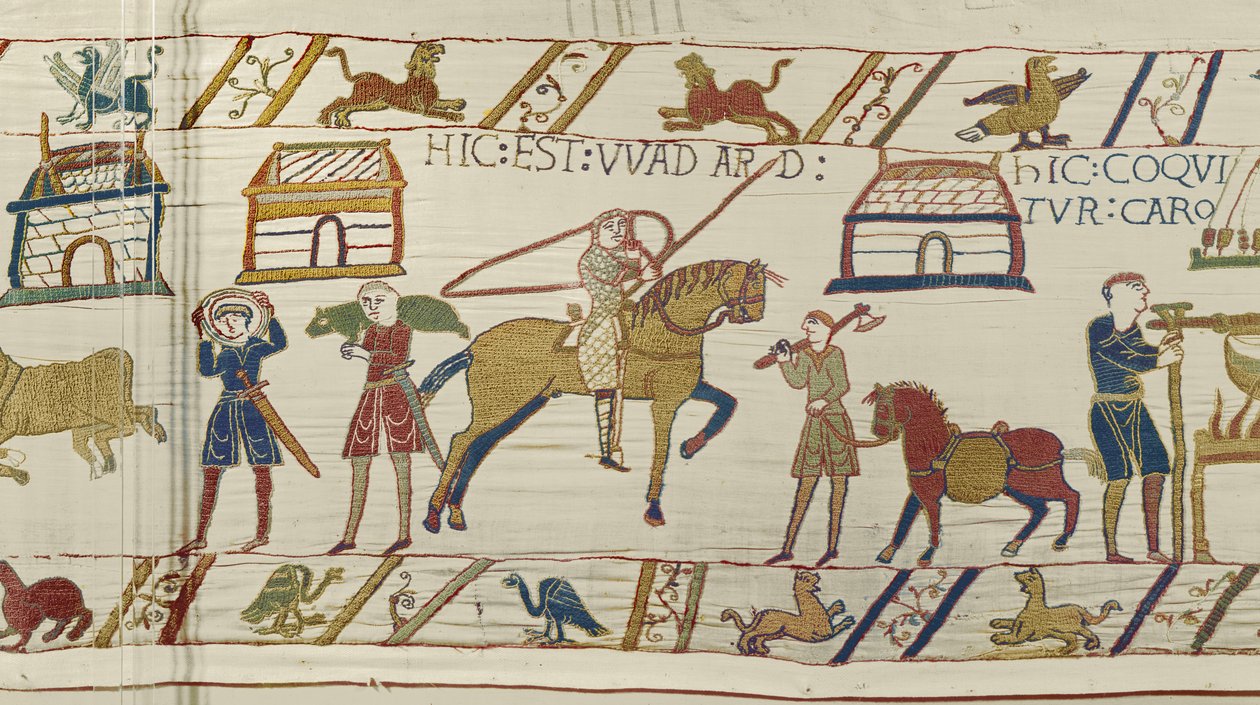 HIC:EST:VVADARD:
hIC:COQVI
TVR:CARO